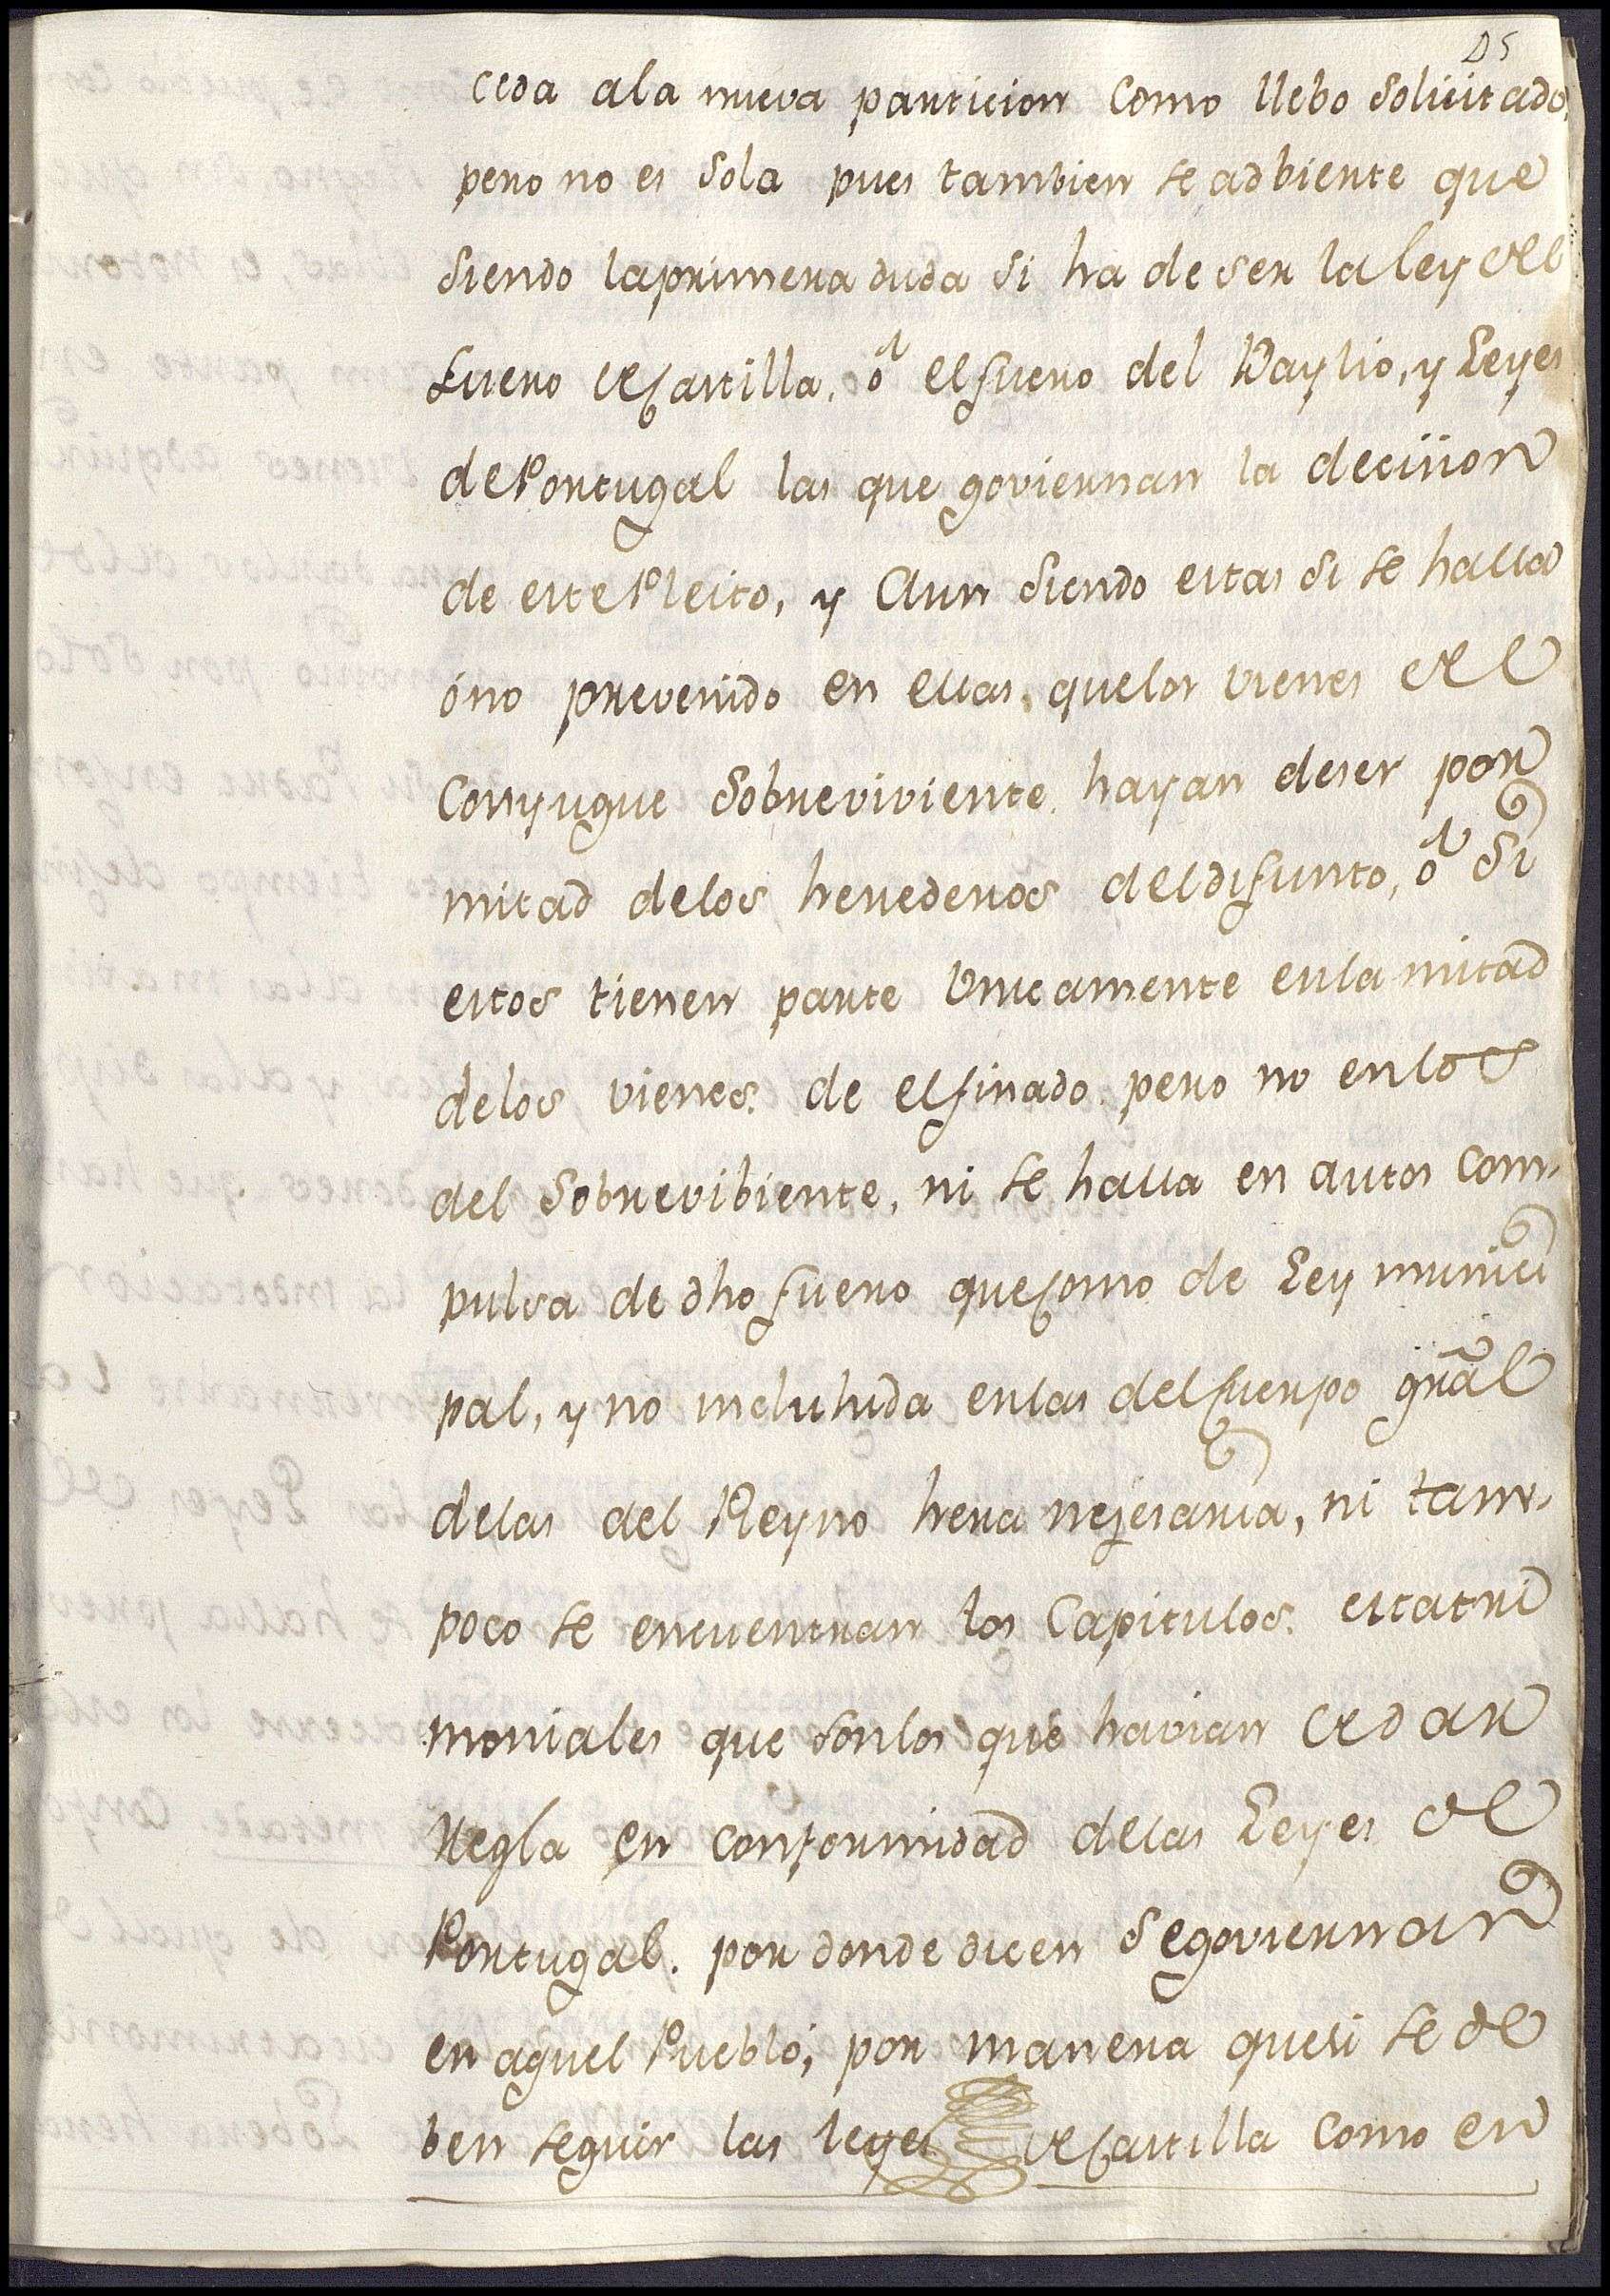 25
ceda ala nueva particion como llebo solicitado,
pero no es sola pues tambien se adbierte que
siendo laprimera duda si ha de ser la ley del
fuero de Castilla, ó el fuero del Baylio, y Leyes
de Portugal las que goviernan la decision
de este Pleito, y Aun siendo estas si se halla
óno prevenido en ellas, quelos vienes del
Conyugue sobreviviente hayan deser por
mitad delos herederos del difunto, ó si
estos tienen parte Unicamente enla mitad
delos vienes de el finado pero no enlos
del sobrevibiente, ni se halla en autos com-
pulsa de dho fuero que como de Ley munici
pal, y no incluhida enlas del Cuerpo grãl
delas del Reyno hera nezesaria, ni tam-
poco se encuentran los Capitulos matri
moniales que sonlos que havian de dar
Regla en conformidad delas Leyes de
Portugal por donde dicen se goviernan
en aquel Pueblo; por manera quesi se de
ben seguir las leyes de Castilla como en